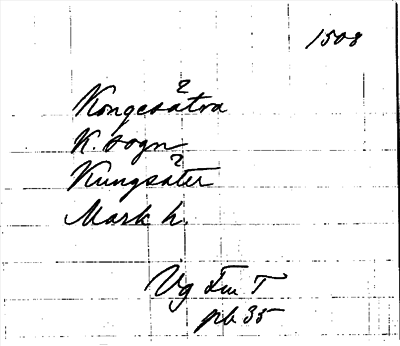 1508
Kongesåtra
K. sogn
Kungsäter
Mark h.
Vg Fru T
pb 35